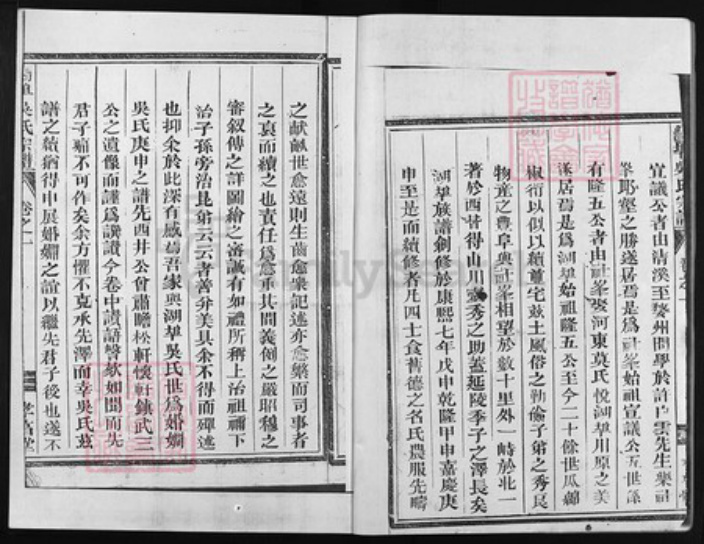 宣議公者由清溪至婺州問學於許白雲先生樂祖
峯耶壑之勝遂居焉是爲社峯始祖宣議公五世孫
有隆五公者由社峯娶河東莫氏悅湖峯川原之美
遂居焉是爲湖峯始祖隆五公至今二十餘世瓜綿
椒衍以似以續蕃宅茲土風俗之勤儉子弟之秀良
物產之豐阜與社峯相望於數十里外一峙於北一
著於西皆得山川靈秀之助蓋延陵季子之澤長矣
湖峯族譜創修於康熙七年戊申乾隆甲申嘉慶庚
申至是而續修者凡四士食舊德之名氏農服先疇
之畎畝世愈遠則生齒愈衆記述亦愈繁而司事者
之裒而續之也責任爲愈重其間義例之嚴昭穆之
審敘傳之詳圖繪之富誠有如禮所稱上治祖禰下
治子孫旁治昆弟云云者善弁美具余不得而殫述
也抑余於此深有感焉吾家與湖峯吳氏世爲婚媾
吳氏庚申之譜先西井公曾肅瞻松軒懷軒鎮武三
公之遺像而謹爲讚讀今卷中讚語謦欬如聞而先
君子痛不可作矣余方懼不克承先澤而幸吳氏茲
譜之續猶得申展婚媾之誼以繼先君子後也遂不
吳氏宗譜
卷之一
孝富堂
吳氏宗譜